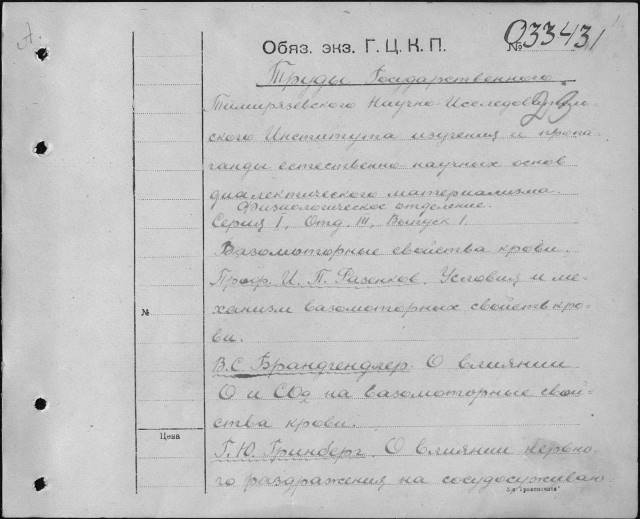 А.
Обяз. экз. Г. Ц. К. П. № 033431
Труды Государственного
23
Тимирязевского Научно-Исследователь-
ского Института изучения и пропа-
ганды естественно научных основ
диалектического материализма.
Физиологическое отделение.
Серия I, Отд. III, Выпуск 1.
Вазомоторные свойства крови.
Проф. И. П. Разенков. Условия и ме-
ханизм вазомоторных свойств кро-
№
ви.
В. С. Брандгендлер. О влиянии
О и СО2 на вазомоторные свой-
ства крови.
Цена
Г. Ю. Гринберг. О влиянии нервно-
го раздражения на сосудосуживаю-